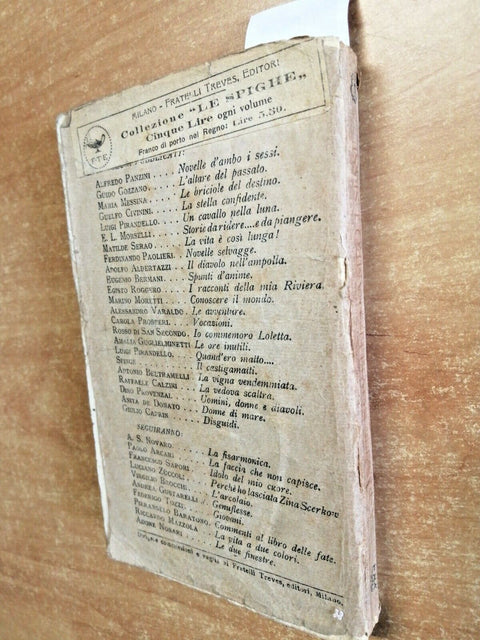 MILANO - FRATELLI TREVES, EDITORI
Collezione "LE SPIGHE"
Cinque Lire ogni volume
Franco di porto nel Regno: Lire 5.50.
F·T·E
ALFREDO PANZINI .... Novelle d'ambo i sessi.
GUIDO GOZZANO..... L'altare del passato.
MARIA MESSINA..... Le briciole del destino.
GUELFO CIVININI.... La stella confidente.
LUIGI PIRANDELLO.... Un cavallo nella luna.
E. L. MORSELLI..... Storie da ridere.... e da piangere.
MATILDE SERAO.... La vita è così lunga!
FERDINANDO PAOLIERI. Novelle selvagge.
ADOLFO ALBERTAZZI.. Il diavolo nell'ampolla.
EUGENIO BERMANI.. Spunti d'anime.
EGISTO ROGGERO... I racconti della mia Riviera.
MARINO MORETTI.... Conoscere il mondo.
ALESSANDRO VARALDO. Le avventure.
CAROLA PROSPERI.... Vocazioni.
ROSSO DI SAN SECONDO. Io commemoro Loletta.
AMALIA GUGLIELMINETTI Le ore inutili.
LUIGI PIRANDELLO.... Quand'ero matto....
SFINGE ....... Il castigamatti.
ANTONIO BELTRAMELLI . La vigna vendemmiata.
RAFFAELE CALZINI ... La vedova scaltra.
DINO PROVENZAL .... Uomini, donne e diavoli.
ANITA DE DONATO ... Donne di mare.
GIULIO CAPRIN..... Disguidi.
SEGUIRANNO:
A. S. NOVARO..... La fisarmonica.
PAOLO ARCARI..... La faccia che non capisce.
FRANCESCO SAPORI... Idolo del mio cuore.
LUCIANO ZUCCOLI.... Perché ho lasciata Zina Scerkow
VIRGILIO BROCCHI... L'arcolaio.
ANDREA GUSTARELLI .. Genuflesse.
FEDERIGO TOZZI.... Giovani.
PIERANGELO BARATONO. Commenti al libro delle fate.
RICCARDO MAZZOLA .. La vita a due colori.
ADONE NOSARI..... Le due finestre.
Dirigere commissioni e vaglia ai Fratelli Treves, editori, Milano.